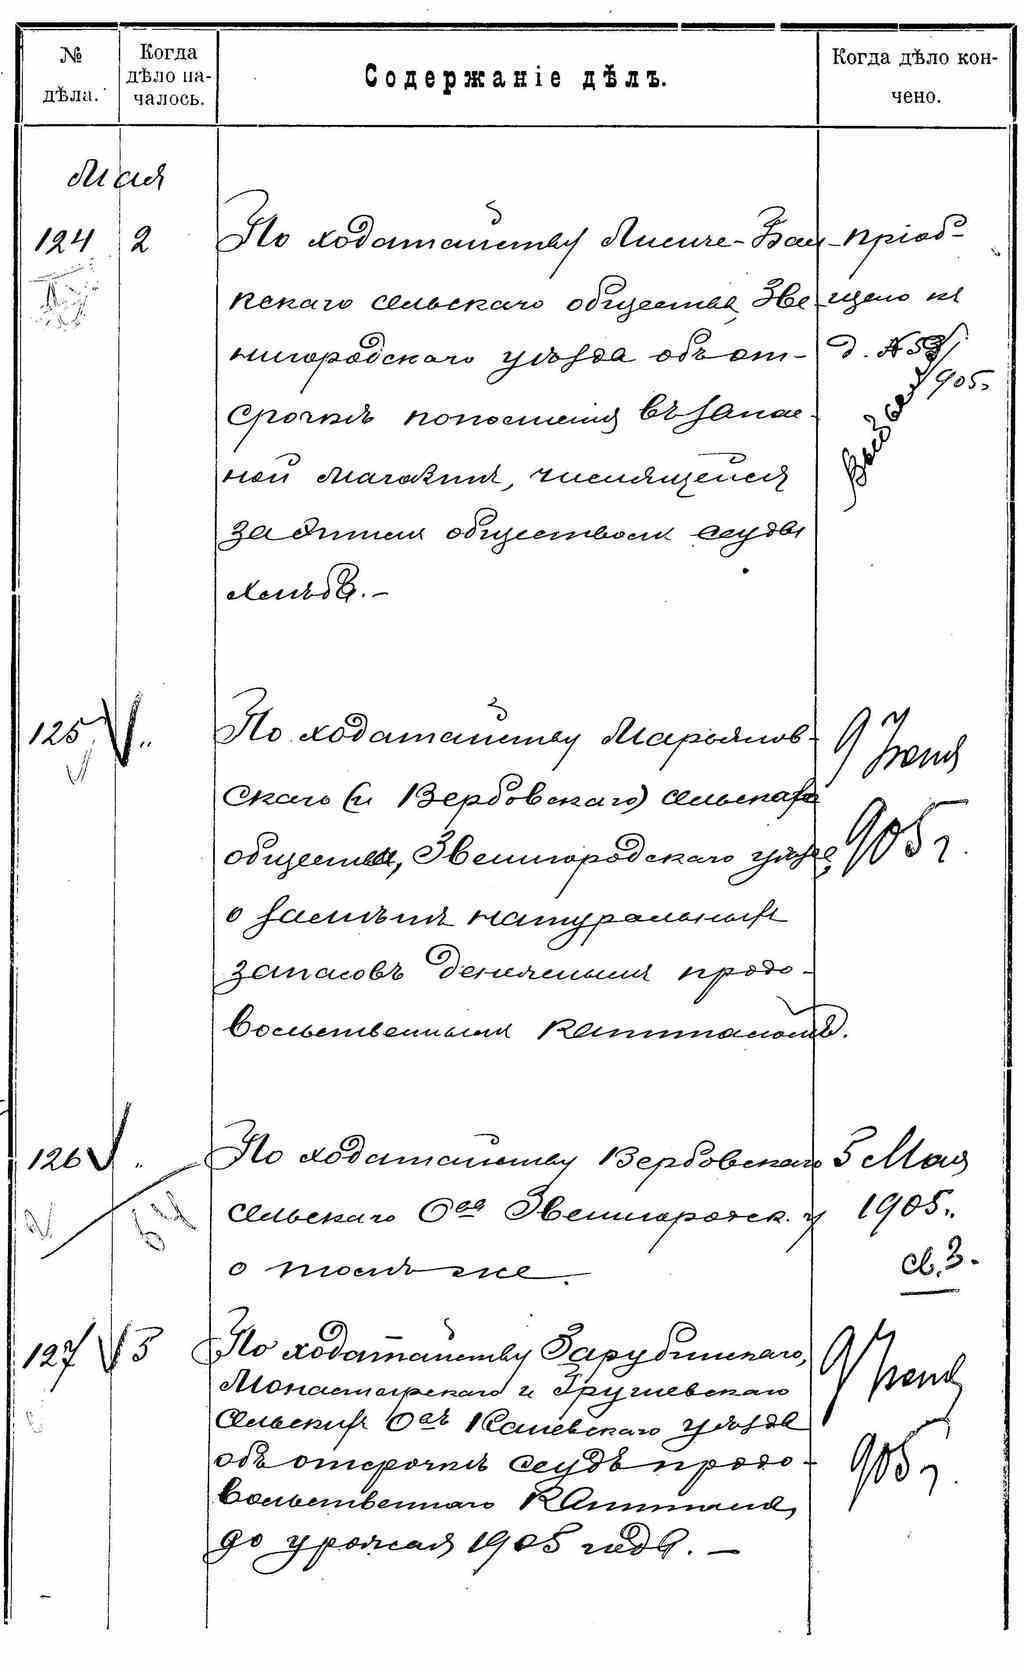 № дѣла.
Когда дѣло на-
чалось.
Содержаніе дѣлъ.
Когда дѣло кон-
чено.
Мая
124 2 По ходатайству Лисиче-Бал-
кскаго сельскаго общества, Зве-
нигородскаго уѣзда объ от-
срочкѣ пополненія въ запас-
ной магазинъ, числящейся
за этимъ обществомъ ссуды
хлѣба.-
пріоб-
щено къ
д. № 53/
905.
125 „ По ходатайству Марьянов-
скаго (и Вербовскаго) сельскаго
общества, Звенигородскаго уѣзда,
о замѣнѣ натуральныхъ
запасовъ денежнымъ продо-
вольственнымъ капиталомъ.
9 Іюня
905 г.
126 „ По ходатайству Вербовскаго
сельскаго О-ва Звенигородск. у
о томъ же.
64
5 Мая
1905.
св. 3.
127 3 По ходатайству Зарубинскаго,
Монастырскаго и Григиевскаго
сельскихъ О-въ Каневскаго уѣзда
объ отсрочкѣ ссудъ продо-
вольственнаго капитала,
до урожая 1905 года. -
9 Іюня
905 г.